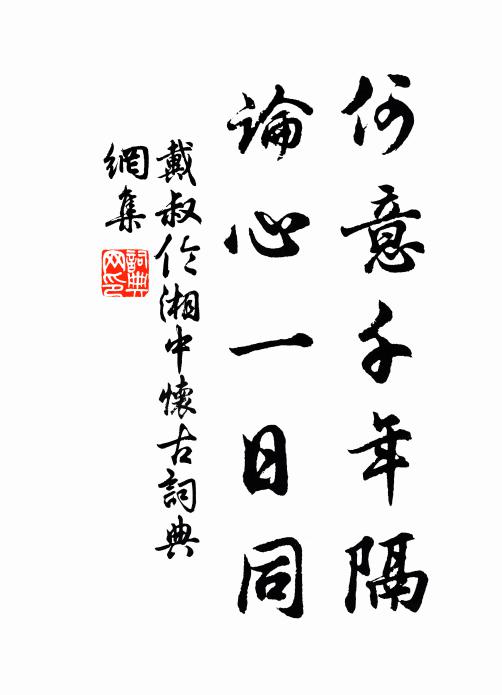 何意千年隔
論心一日同
戴叔伦湘中懷古詞典
網集
詞典
网印